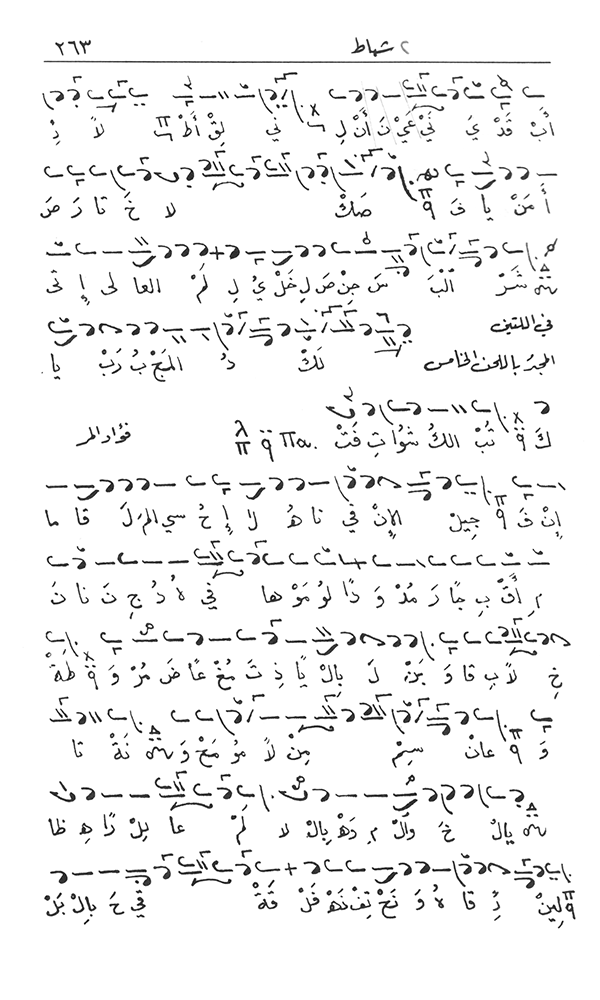 ٢ شباط ٢٦٣
أَبْ قَدْ يَ نَيْ عَيْ نَ أَنْ لِ ني لِقْ أَطْ لا ذِ
أَ مَنْ يا صَكْ لا خَ تا رَ صَ
شَرْ الْبَ سَ جِنْ صَ لِ خَلْ يُ لِ لَمْ العا لى إِ تى
في اللتين
المجد باللحن الخامس لَكْ دُ المَجْ بُ رَبْ يا
كَ تُبْ الكُ فَتْ فؤاد المر
إِنْ جيلْ الإِنْ في نا هُ لا إِ حُ سي المَ لَ قا ما
مِ أَقْ بِ جا رَ مُدْ وَ ذا لو مَوْ ها في هُ دُ جِ نَ نا نَ
خِ لا بِ قا وَ لَ بِالْ يا ذِ تَ مُغْ عا ضَ مُرْ وَ
وَ عانْ سِمْ مِنْ لا مو مَعْ وَ نَةْ تا
يالْ خَ وَالْ مِ دَهْ بِالْ لا لَمْ عا بِلْ ذا هِ ظا
لِينْ ذِ قا هُ وَ نَحْ تِفْ نَهْ فَلْ قَةْ في حَ بِالْ بَرْ